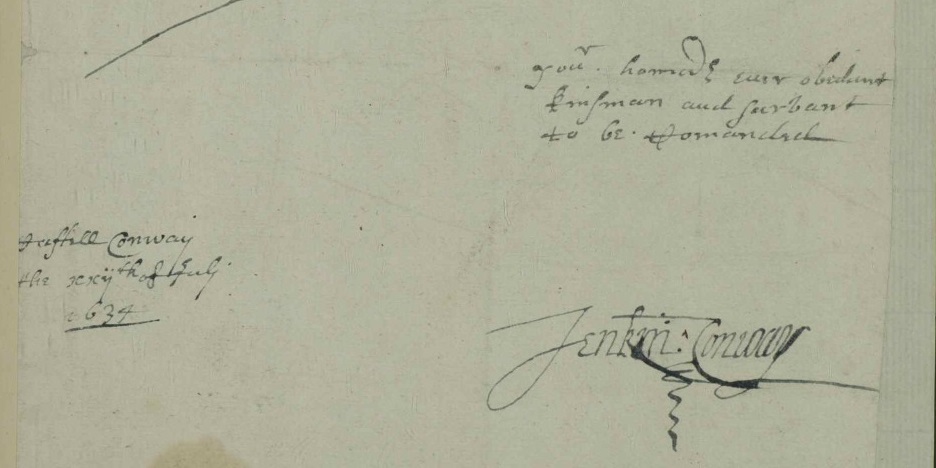 your honnors ever obedient
kinsman and servant
to be Comanded
Castell Conway
the xxijth of Julij
1634
Jenkin: Conway